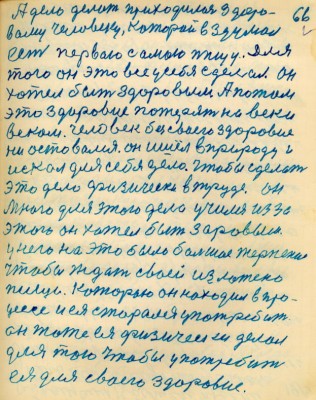 А дело делат приходилося здоро- 66
вому человеку, который вздумал
ест первою самою пищу. Для
того он это все у себя сделал он
хотел быт здоровым. А потом
это здоровие потерят на веки
веком. Человек без своего здоровие
ни оставался. он шил в природу и
искал для себя дело. Чтобы сделат
это дело физически в труде. он
много для этого дело учился из за
этого он хотел быт здаровым.
у него на это было большое терпение
чтобы ждат своей из лотено
пищи. Которою он находил в про-
цесе и ея старался употребит
он тоже ея физически делал
для того чтобы употребит
ея для своего здоровие.